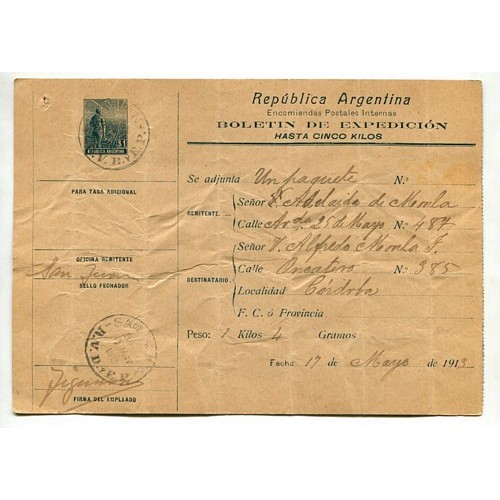 República Argentina
Encomiendas Postales Internas
BOLETIN DE EXPEDICIÓN
HASTA CINCO KILOS
REPUBLICA ARGENTINA
$1
PARA TASA ADICIONAL
OFICINA REMITENTE
San Juan
SELLO FECHADOR
FIRMA DEL EMPLEADO
Se adjunta Un paquete N.º
REMITENTE.
Señor Adelaida de
Calle Avda 25 de Mayo N.º 487
DESTINATARIO
Señor Alfredo
Calle N.º 385
Localidad Córdoba
F. C. ó Provincia
Peso: 1 Kilos 4 Gramos
Fecha 17 de Mayo de 1913